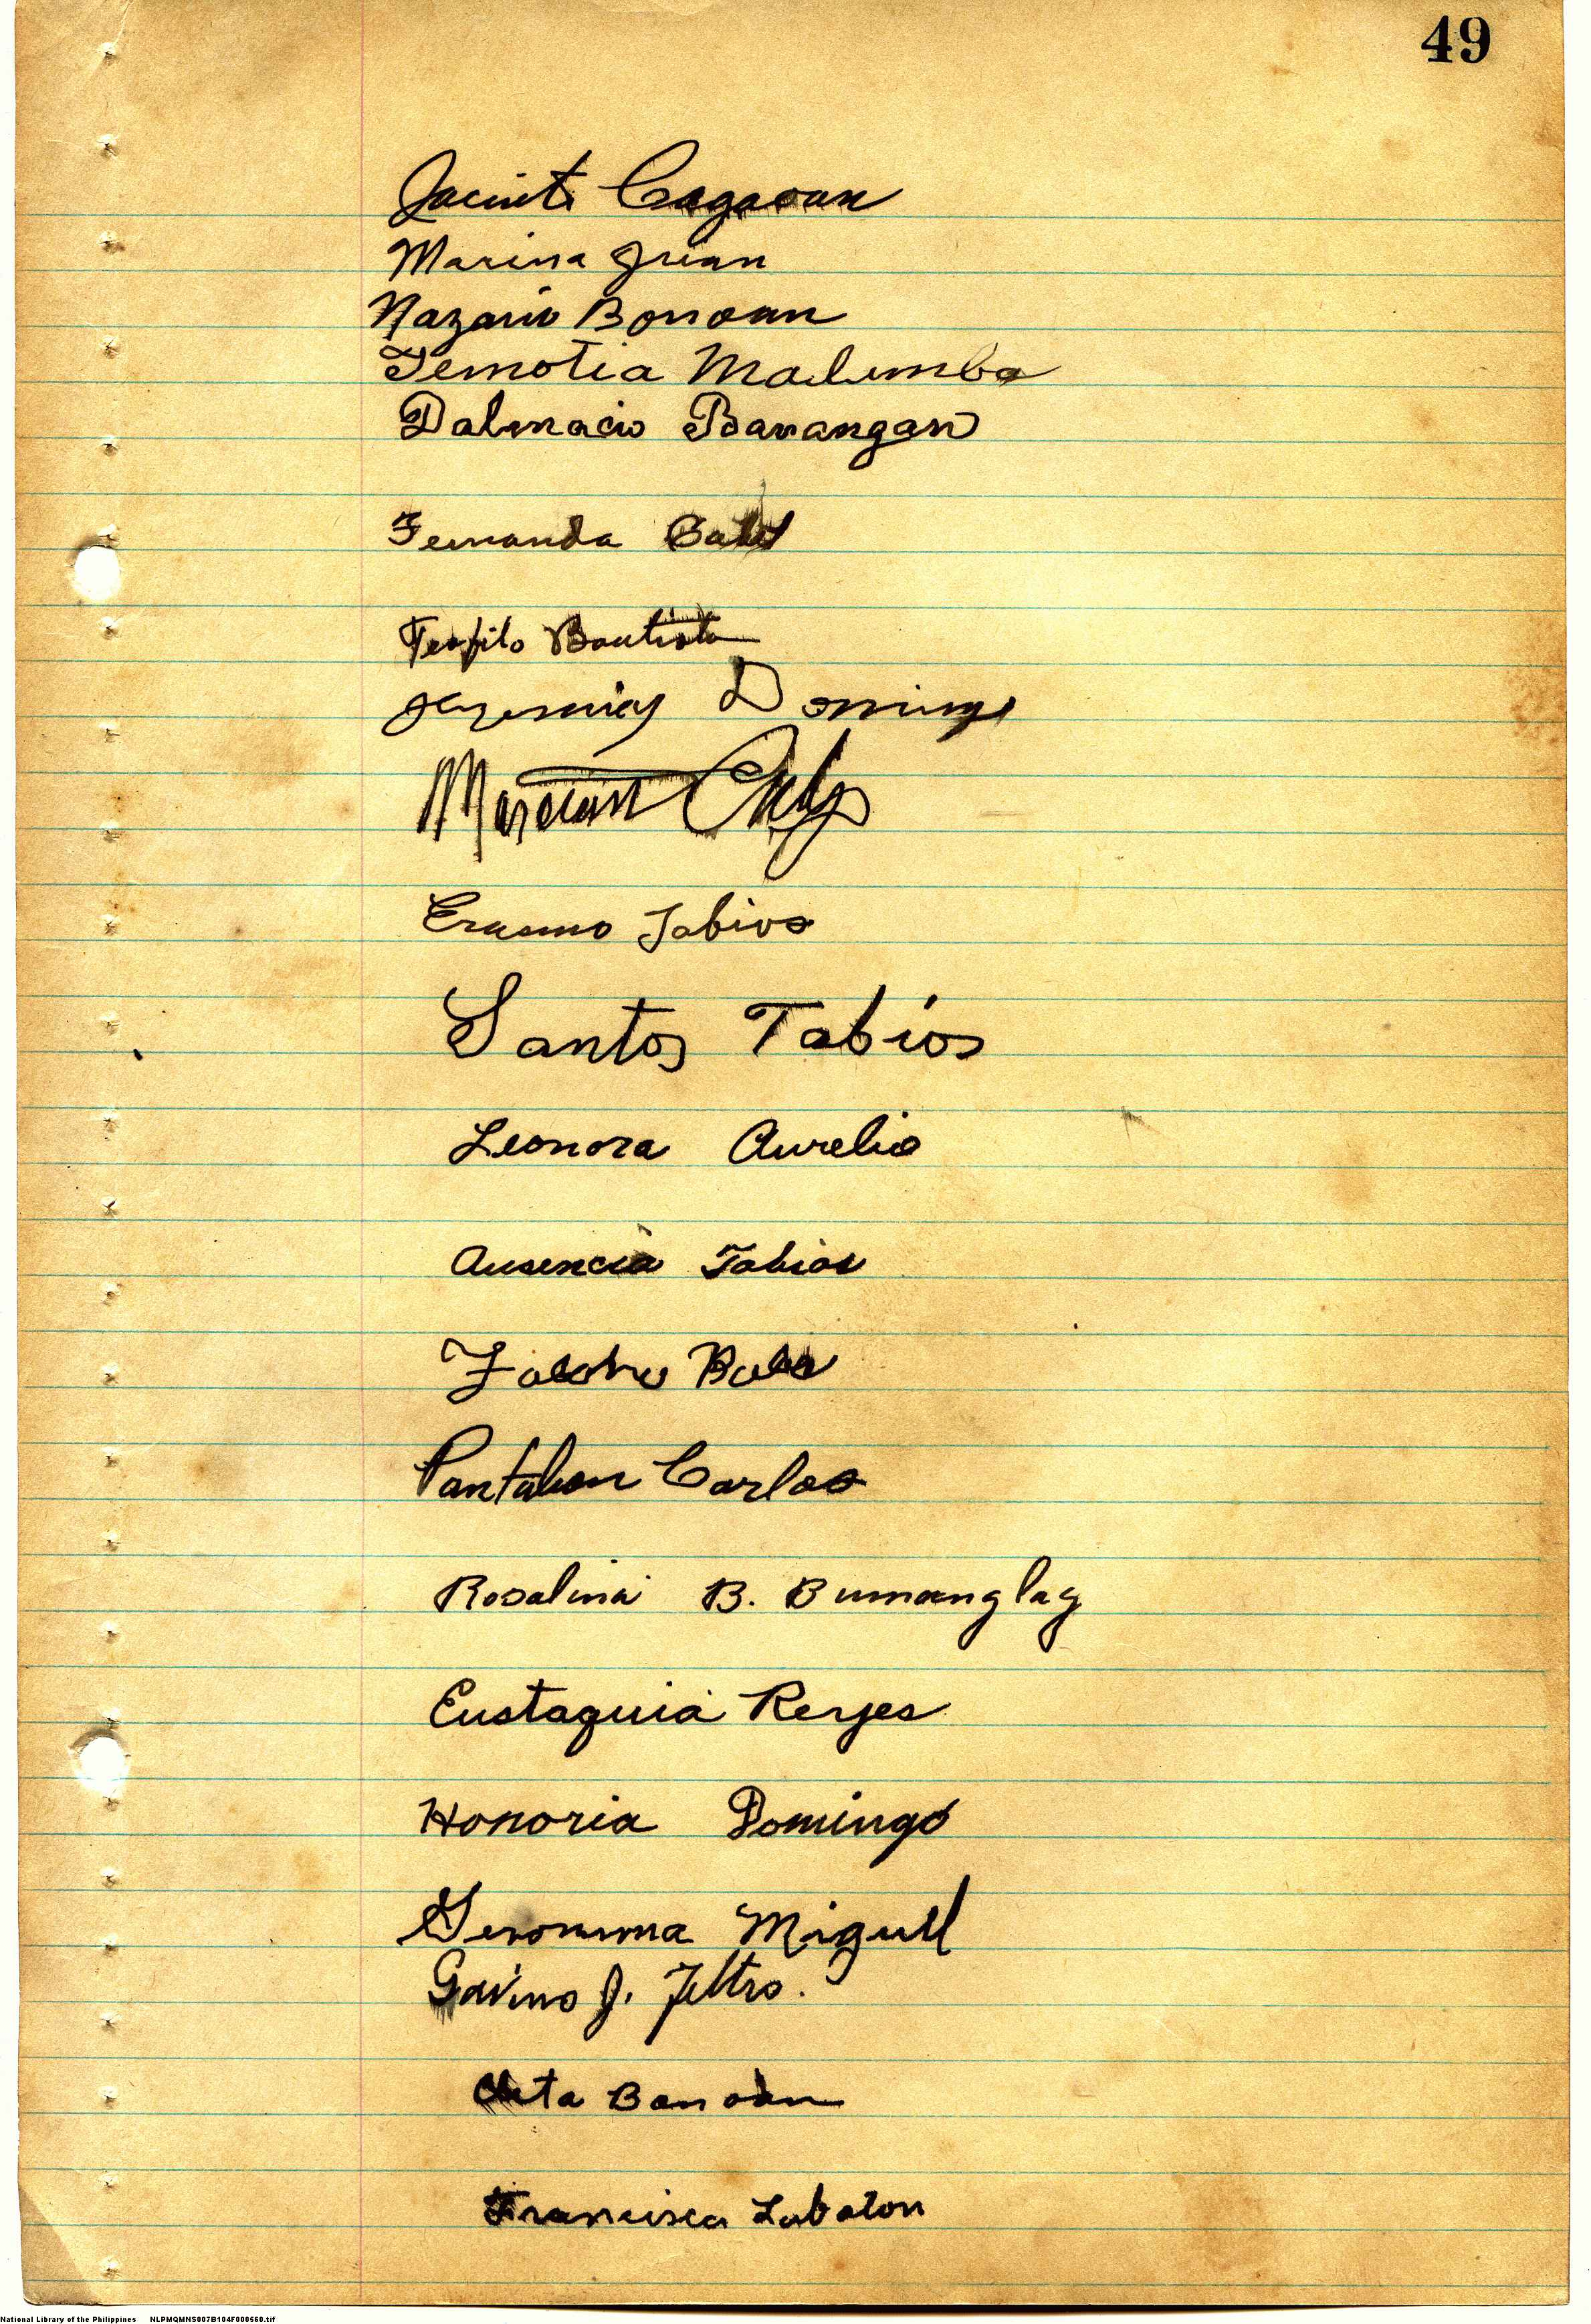 49
Jacinto Cagaoan
Marina Juan
Nazario Bonoan
Temotia Madumba
Dalmacio Barangan
Fernanda
Teofilo Bautista
Jeremias Domingo
Erasmo Tabios
Santos Tabios
Leonora Aurelio
Ausencia Tabios
Pantaleon Carlos
Rosalina B. Bumanglag
Eustaquia Reyes
Honoria Domingo
Geronima Miguel
Gavino J. Feltro.
Cleta Bonoan
Francisca Labaton
National Library of the Philippines NLPMQMNS007B104F000560.tif